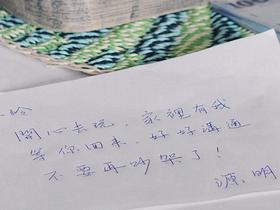 給
開心去玩，家裡有我
等你回來，好好溝通
不要再吵架了！
源明